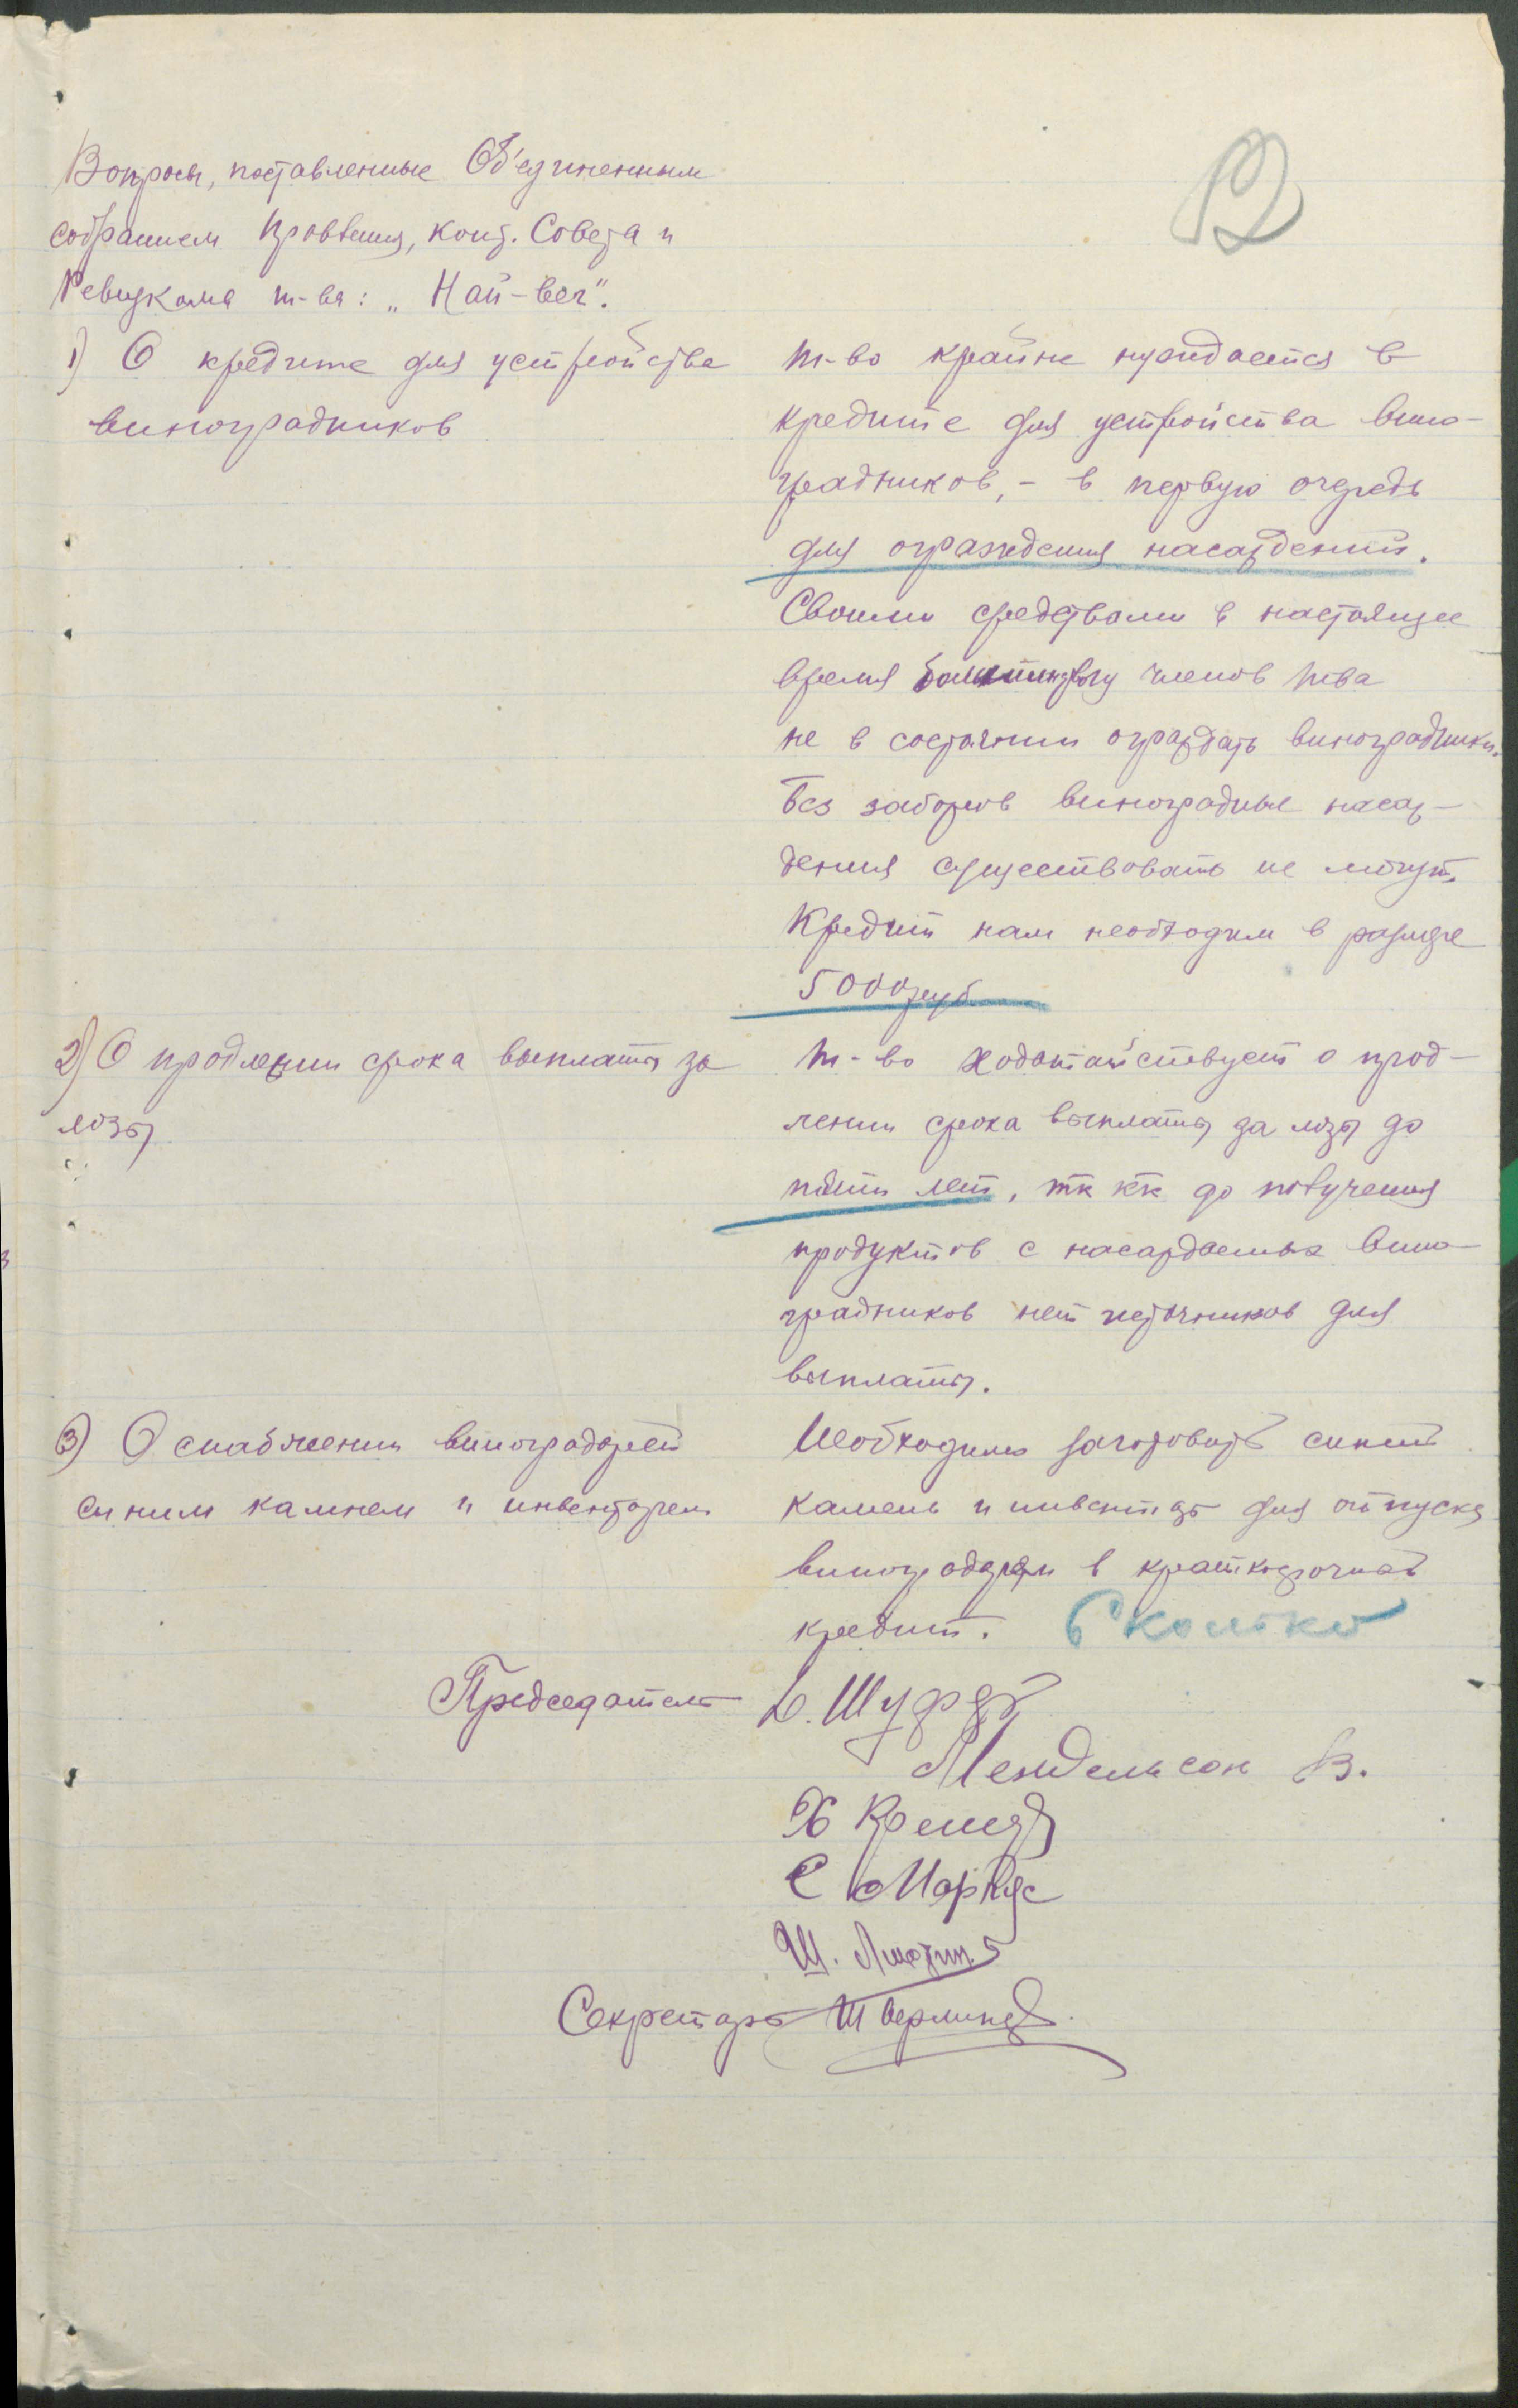 12
Вопросы, поставленные Об'единенным
собранием Правления, Конт. Совета и
Ревизкома т-ва: „Най-вег".
1) О кредите для устройства
виноградников
т-во крайне нуждается в
кредите для устройства вино-
градников, - в первую очередь
для ограждения насаждений.
Своими средствами в настоящее
время большинству членов т-ва
не в состоянии ограждать виноградники.
Без заборов виноградные насаж-
дения существовать не могут.
Кредит нам необходим в размере
5000 руб.
2) О продлении срока выплаты за
лозы
т-во ходатайствует о прод-
лении срока выплаты за лозы до
пяти лет, тк кк до получения
продуктов с насаждаемых вино-
градников нет источников для
выплаты.
3) О снабжении виноградарей
синим камнем и инвентарем
Необходимо заготовить синий
камень и инвентарь для отпуска
виноградарям в краткосрочный
кредит. Сколько
Председатель
Мендельсон В.
Х Кремер
С Маркус
Секретарь